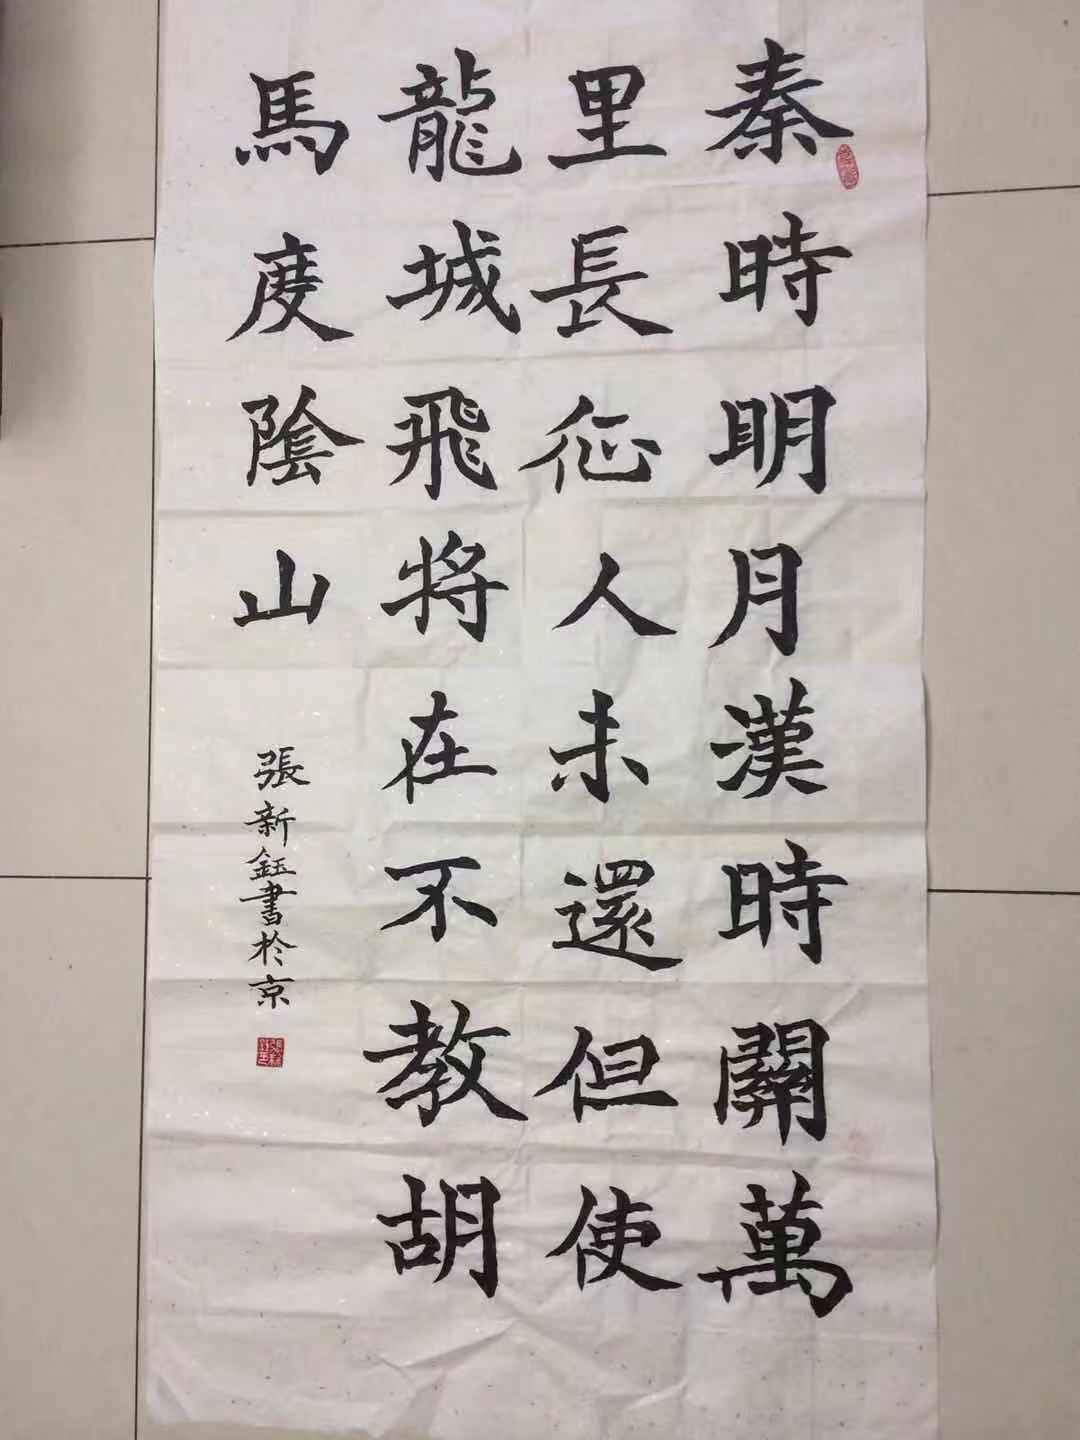 秦時明月漢時關萬
里長征人未還但使
龍城飛將在不教胡
馬度陰山
張新鈺書於京